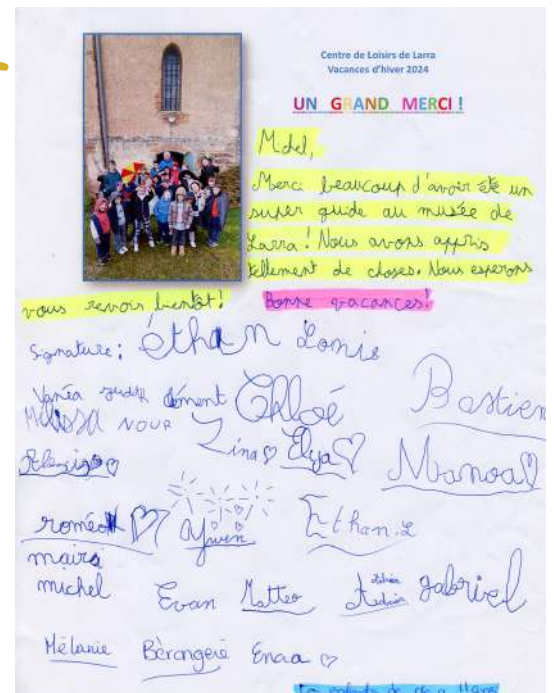 Centre de Loisirs de Larra
Vacances d'hiver 2024
UN GRAND MERCI !
Merci beaucoup d'avoir été un
super guide au musée de
Larra ! Nous avons appris
tellement de choses. Nous esperons
vous revoir bientôt! Bonne vacances!
Signature: éthan Lomis
Vanéa clément Chloé Bastien
Melissa NOUR Lina Elya Manoa
roméo Ywen Ethan.L
maira
michel Evan Matteo Adrien gabriel
Mélanie Bérangère Enaa